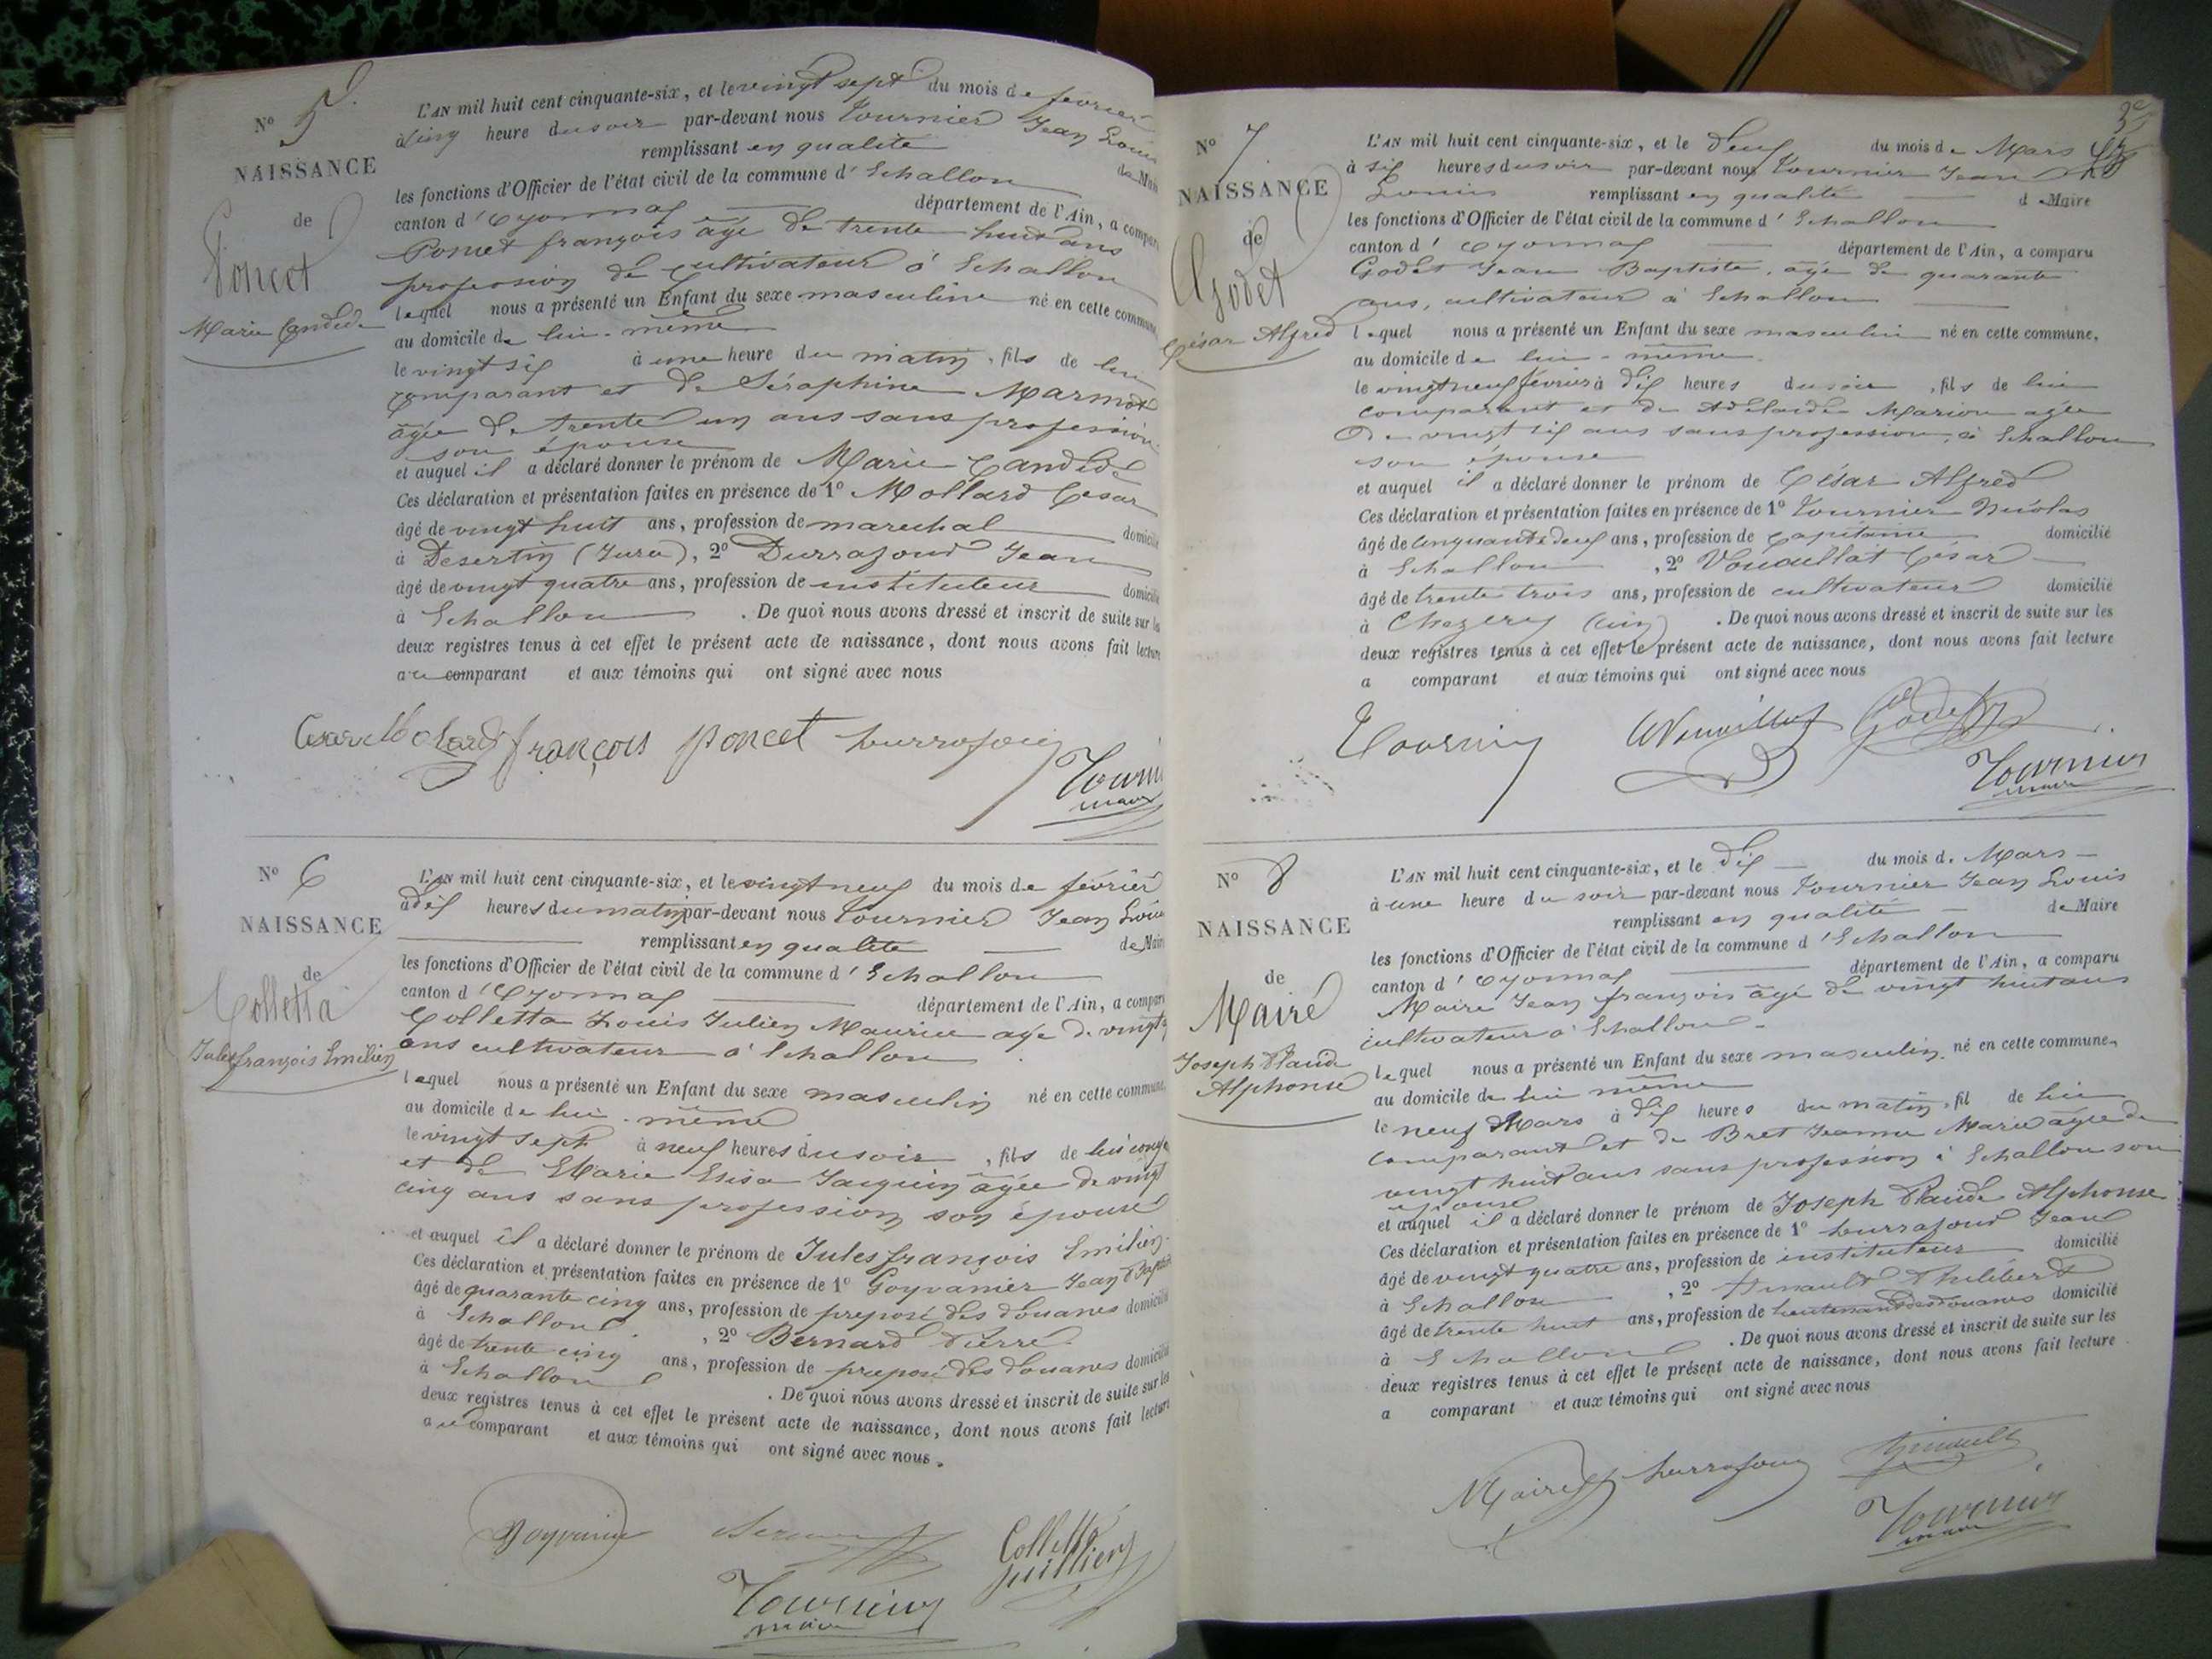 N° 5.
NAISSANCE
de
Poncet
Marie Candide
L'AN mil huit cent cinquante-six, et le vingt sept du mois de février
à cinq heure du soir par-devant nous Tournier Jean Louis
remplissant en qualité de Maire
les fonctions d'Officier de l'état civil de la commune d' Echallon
canton d' Oyonnax département de l'Ain, a comparu
Poncet françois âgé de trente huit ans
profession de cultivateur à Echallon
lequel nous a présenté un Enfant du sexe masculine né en cette commune
au domicile de lui-même
le vingt six à une heure du matin, fils de lui
comparant et de Séraphine Marmot
âgée de trente un ans sans profession
son épouse
et auquel il a déclaré donner le prénom de Marie Candide
Ces déclaration et présentation faites en présence de 1° Mollard César
âgé de vingt huit ans, profession de marechal domicilié
à Desertin (Jura), 2° Durrafour Jean
âgé de vingt quatre ans, profession de instituteur domicilié
à Echallon. De quoi nous avons dressé et inscrit de suite sur les
deux registres tenus à cet effet le présent acte de naissance, dont nous avons fait lecture
au comparant et aux témoins qui ont signé avec nous
Cesar Molard françois poncet Durrafour
Tournier
maire
N° 6
NAISSANCE
de
Colletta
Jules françois Emilien
L'AN mil huit cent cinquante-six, et le vingt neuf du mois de février
à dix heures du matin par-devant nous Tournier Jean Louis
remplissant en qualité de Maire
les fonctions d'Officier de l'état civil de la commune d' Echallon
canton d' Oyonnax département de l'Ain, a comparu
Colletta Louis Julien Maurice âgé de vingt
ans cultivateur à Echallon
lequel nous a présenté un Enfant du sexe masculin né en cette commune,
au domicile de lui-même
le vingt sept à neuf heures du soir, fils de lui
et de Marie Elisa Jacquin âgée de vingt
cinq ans sans profession son épouse
et auquel il a déclaré donner le prénom de Jules françois Emilien
Ces déclaration et présentation faites en présence de 1° Goyvanier Jean
âgé de quarante cinq ans, profession de preposé des douanes domicilié
à Echallon, 2° Bernard Pierre
âgé de trente cinq ans, profession de preposé des douanes domicilié
à Echallon. De quoi nous avons dressé et inscrit de suite sur les
deux registres tenus à cet effet le présent acte de naissance, dont nous avons fait lecture
au comparant et aux témoins qui ont signé avec nous.
Colletta
Juillien
Tournier
maire
N° 7
NAISSANCE
de
Godet
César Alfred
L'AN mil huit cent cinquante-six, et le deux du mois de Mars
à six heures du soir par-devant nous Tournier Jean
Louis remplissant en qualité d Maire
les fonctions d'Officier de l'état civil de la commune d' Echallon
canton d' Oyonnax département de l'Ain, a comparu
Godet Jean Baptiste, âgé de quarante
ans, cultivateur à Echallon
lequel nous a présenté un Enfant du sexe masculin né en cette commune,
au domicile de lui-même
le vingt neuf février à dix heures du soir, fils de lui
comparant et de Adélaïde Marion agée
de vingt six ans sans profession, à Echallon
son épouse
et auquel il a déclaré donner le prénom de César Alfred
Ces déclaration et présentation faites en présence de 1° Tournier Nicolas
âgé de cinquante deux ans, profession de capitaine domicilié
à Echallon, 2° Vouaillat César
âgé de trente trois ans, profession de cultivateur domicilié
à Chezery (ain). De quoi nous avons dressé et inscrit de suite sur les
deux registres tenus à cet effet le présent acte de naissance, dont nous avons fait lecture
a comparant et aux témoins qui ont signé avec nous
Tournier Godet
Tournier
maire
N° 8
NAISSANCE
de
Mairé
Joseph Claude
Alphonse
L'AN mil huit cent cinquante-six, et le dix du mois de Mars
à une heure du soir par-devant nous Tournier Jean Louis
remplissant en qualité de Maire
les fonctions d'Officier de l'état civil de la commune d' Echallon
canton d' Oyonnax département de l'Ain, a comparu
Maire Jean françois âgé de vingt huit ans
cultivateur à Echallon
lequel nous a présenté un Enfant du sexe masculin né en cette commune,
au domicile de lui même
le neuf Mars à dix heures du matin, fil de lui
comparant et de Bret Jeanne Marie âgée de
vingt huit ans sans profession à Echallon son
épouse
et auquel il a déclaré donner le prénom de Joseph Claude Alphonse
Ces déclaration et présentation faites en présence de 1° Durrafour Jean
âgé de vingt quatre ans, profession de instituteur domicilié
à Echallon, 2° Philibert
âgé de trente huit ans, profession de lieutenant des douanes domicilié
à Echallon. De quoi nous avons dressé et inscrit de suite sur les
deux registres tenus à cet effet le présent acte de naissance, dont nous avons fait lecture
a comparant et aux témoins qui ont signé avec nous
Maire Durrafour
Tournier
maire